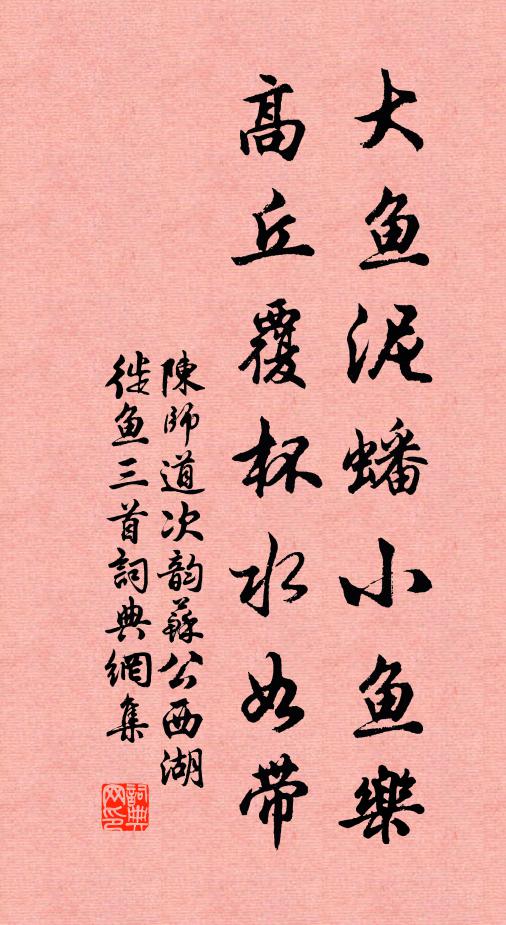 大鱼泥蟠小鱼樂
高丘覆杯水如带
陳師道次韵蘇公西湖
徙鱼三首詞典網集
詞典
网印